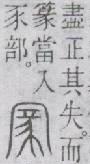 盡正其失。而
篆當入
豕部。